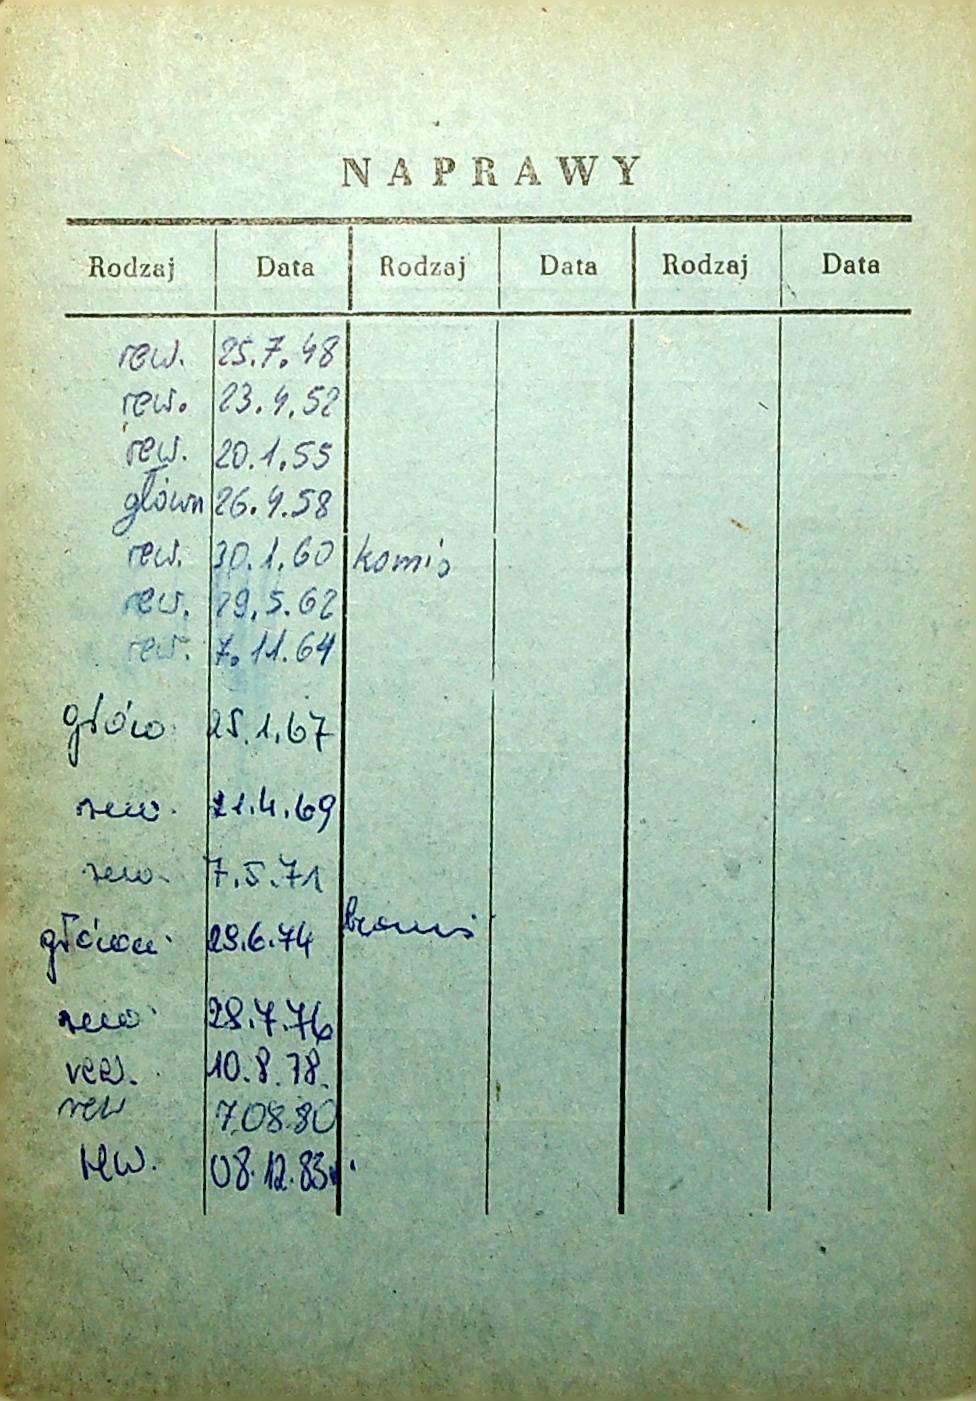 NAPRAWY
Rodzaj Data Rodzaj Data Rodzaj Data
rew. 25.7.48
rew. 23.4.52
rew. 20.1.55
główn 26.4.58
rew. 30.1.60 komis
rew. 29.5.62
rew. 7.11.64
głów. 25.1.67
rew. 21.4.69
rew. 7.5.71
główn. 29.6.74
rew. 28.7.76
rew. 10.8.78.
rew 7.08.80
rew. 08.12.83